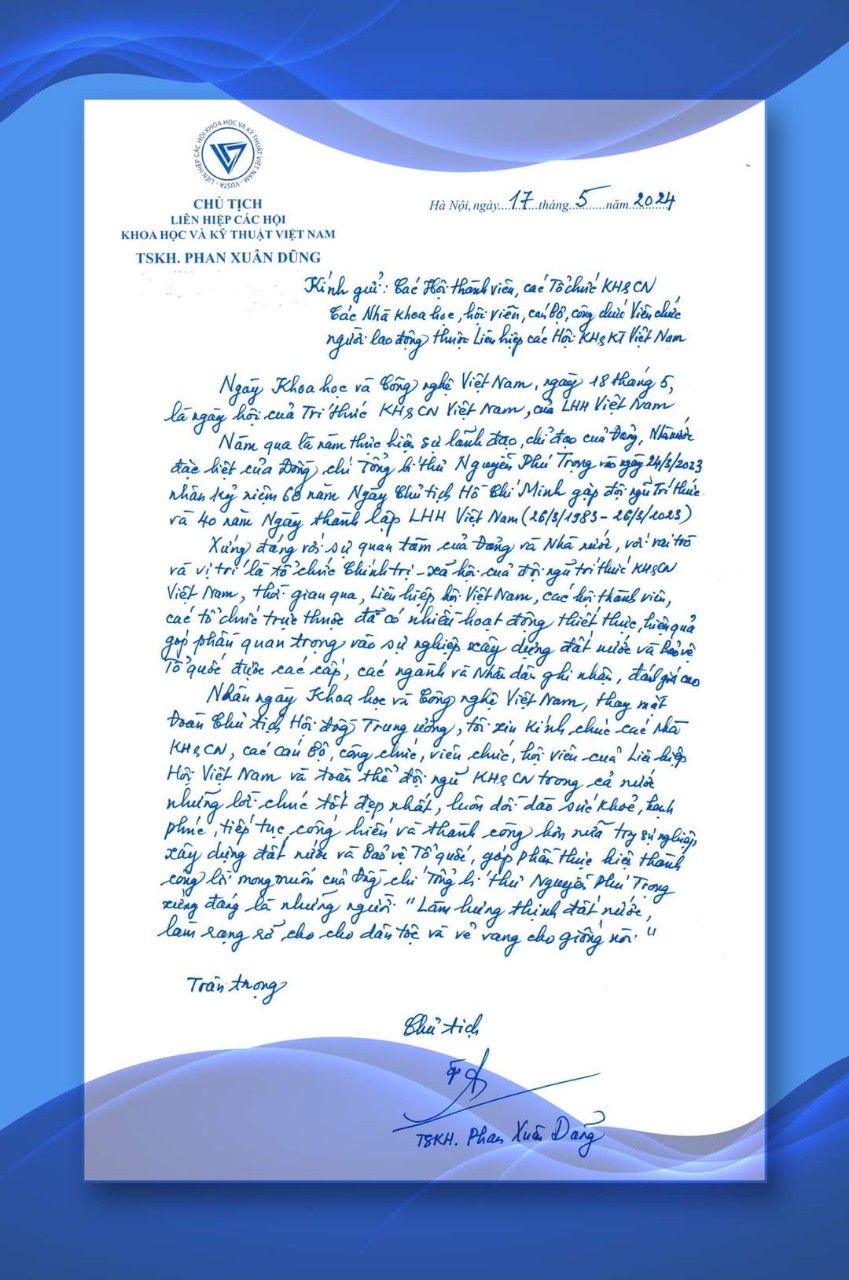 LIÊN HIỆP CÁC HỘI KHOA HỌC VÀ KỸ THUẬT VIỆT NAM - VUSTA
CHỦ TỊCH
LIÊN HIỆP CÁC HỘI
KHOA HỌC VÀ KỸ THUẬT VIỆT NAM
TSKH. PHAN XUÂN DŨNG
Hà Nội, ngày 17 tháng 5 năm 2024
Kính gửi: Các Hội thành viên, các Tổ chức KH&CN
Các Nhà khoa học, hội viên, cán bộ, công chức Viên chức
người lao động thuộc Liên hiệp các Hội KH&KT Việt Nam
Ngày Khoa học và Công nghệ Việt Nam, ngày 18 tháng 5,
là ngày hội của Trí thức KH&CN Việt Nam, của LHH Việt Nam
Năm qua là năm thực hiện sự lãnh đạo, chỉ đạo của Đảng, Nhà nước
đặc biệt của Đồng chí Tổng bí thư Nguyễn Phú Trọng vào ngày 24/3/2023
nhân kỷ niệm 60 năm Ngày Chủ tịch Hồ Chí Minh gặp đội ngũ Trí thức
và 40 năm Ngày thành lập LHH Việt Nam (26/3/1983 - 26/3/2023)
Xứng đáng với sự quan tâm của Đảng và Nhà nước, với vai trò
và vị trí là tổ chức Chính trị - xã hội của đội ngũ trí thức KH&CN
Việt Nam, thời gian qua, Liên hiệp hội Việt Nam, các hội thành viên,
các tổ chức trực thuộc đã có nhiều hoạt động thiết thực, hiệu quả
góp phần quan trọng vào sự nghiệp xây dựng đất nước và bảo vệ
Tổ quốc được các cấp, các ngành và Nhân dân ghi nhận, đánh giá cao
Nhân ngày Khoa học và Công nghệ Việt Nam, thay mặt
Đoàn Chủ tịch Hội đồng Trung ương, tôi xin kính chúc các Nhà
KH&CN, các cán bộ, công chức, viên chức, hội viên của Liên hiệp
Hội Việt Nam và toàn thể đội ngũ KH&CN trong cả nước
những lời chúc tốt đẹp nhất, luôn dồi dào sức khoẻ, hạnh
phúc, tiếp tục cống hiến và thành công hơn nữa trg sự nghiệp
xây dựng đất nước và Bảo vệ Tổ quốc, góp phần thực hiện thành
công lời mong muốn của Đồng chí Tổng bí thư Nguyễn Phú Trọng
xứng đáng là những người "Làm hưng thịnh đất nước,
làm rạng rỡ cho cho dân tộc và vẻ vang cho giống nòi."
Trân trọng
Chủ tịch
TSKH. Phan Xuân Dũng